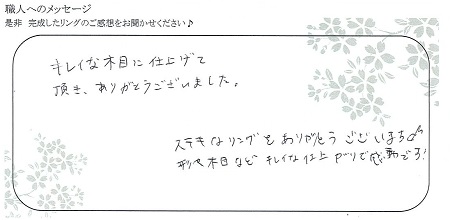 職人へのメッセージ
是非 完成したリングのご感想をお聞かせください♪
キレイな木目に仕上げて
頂き、ありがとうございました。
ステキなリングをありがとうございます♪
形や木目など キレイな仕上がりで感動です!